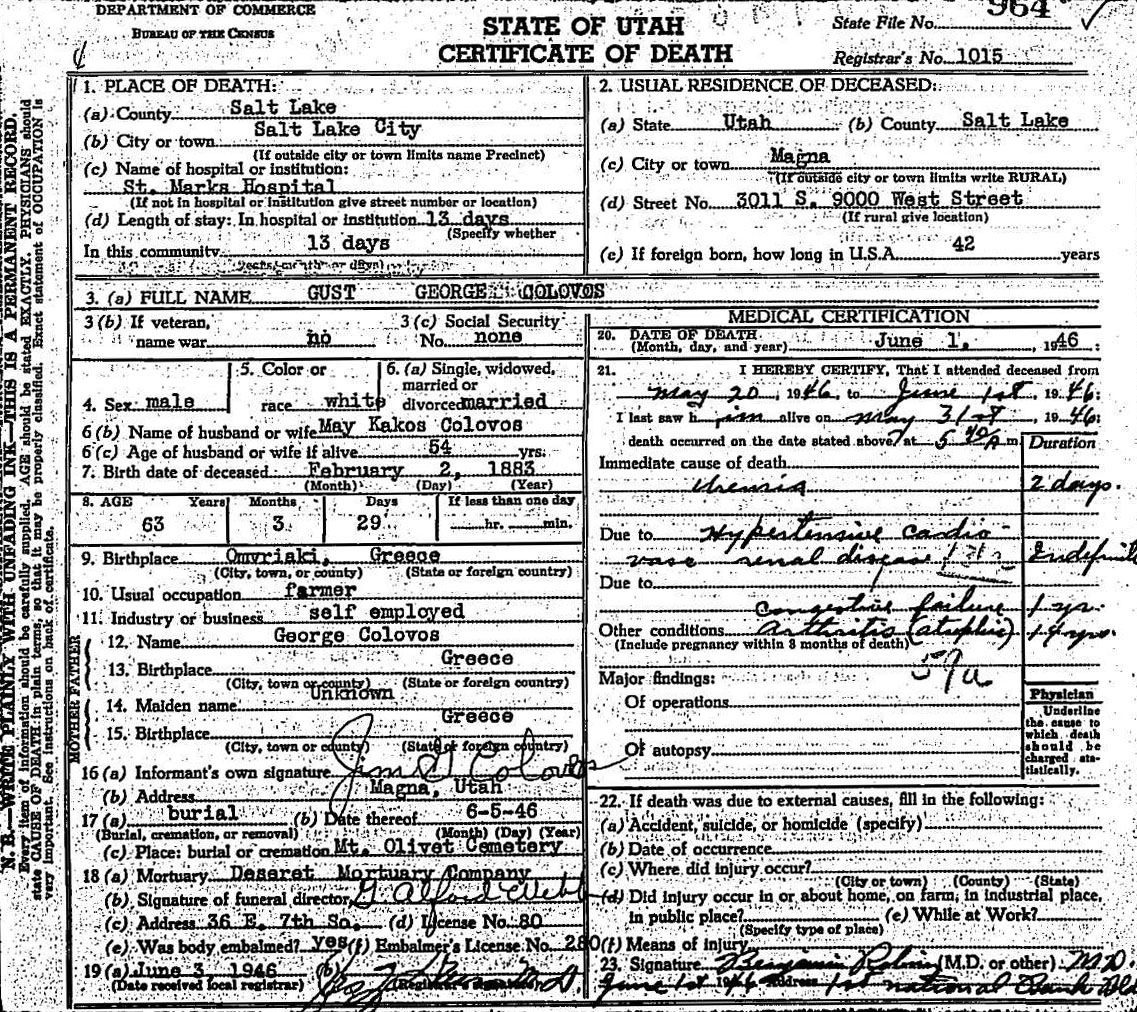 DEPARTMENT OF COMMERCE
BUREAU OF THE CENSUS
STATE OF UTAH
CERTIFICATE OF DEATH
State File No. 964
Registrar's No. 1015
N. B.—WRITE PLAINLY WITH UNFADING INK—THIS IS A PERMANENT RECORD.
Every item of information should be carefully supplied. AGE should be stated EXACTLY. PHYSICIANS should
state CAUSE OF DEATH in plain terms, so that it may be properly classified. Exact statement of OCCUPATION is
very important. See instructions on back of certificate.
1. PLACE OF DEATH:
(a) County Salt Lake
(b) City or town Salt Lake City
(If outside city or town limits name Precinct)
(c) Name of hospital or institution:
St. Marks Hospital
(If not in hospital or institution give street number or location)
(d) Length of stay: In hospital or institution 13 days
(Specify whether
In this community 13 days
years, month or days)
2. USUAL RESIDENCE OF DECEASED:
(a) State Utah (b) County Salt Lake
(c) City or town Magna
(If outside city or town limits write RURAL)
(d) Street No. 3011 S. 9000 West Street
(If rural give location)
(e) If foreign born, how long in U.S.A. 42 years
3. (a) FULL NAME GUST GEORGE COLOVOS
3 (b) If veteran, name war no
3 (c) Social Security No. none
4. Sex male
5. Color or race white
6. (a) Single, widowed, married or divorced married
6 (b) Name of husband or wife May Kakos Colovos
6 (c) Age of husband or wife if alive 54 yrs.
7. Birth date of deceased February 2, 1883
(Month) (Day) (Year)
8. AGE Years Months Days If less than one day
63 3 29 hr. min.
9. Birthplace Omvriaki, Greece
(City, town, or county) (State or foreign country)
10. Usual occupation farmer
11. Industry or business self employed
FATHER
12. Name George Colovos
13. Birthplace Greece
(City, town or county) (State or foreign country)
MOTHER
14. Maiden name Unknown
15. Birthplace Greece
(City, town or county) (State or foreign country)
16 (a) Informant's own signature Jim G Colovos
(b) Address Magna, Utah
17 (a) burial (b) Date thereof 6-5-46
(Burial, cremation, or removal) (Month) (Day) (Year)
(c) Place: burial or cremation Mt. Olivet Cemetery
18 (a) Mortuary Deseret Mortuary Company
(b) Signature of funeral director G. Alford Webb
(c) Address 36 E. 7th So. (d) License No. 80
(e) Was body embalmed? yes (f) Embalmer's License No. 280
19 (a) June 3, 1946 (b)
(Date received local registrar)
MEDICAL CERTIFICATION
20. DATE OF DEATH
(Month, day, and year) June 1, 1946
21. I HEREBY CERTIFY, That I attended deceased from
May 20, 1946, to June 1st, 1946;
I last saw him alive on May 31st 1946;
death occurred on the date stated above, at 5 40 A m
Duration
Immediate cause of death
Uremia 2 days.
Due to Hypertensive cardio
vasc renal disease Indefinite
Due to
Congestive failure 1 yr.
Other conditions Arthritis (atrophic) 14 yrs.
(Include pregnancy within 3 months of death)
Major findings:
Of operations
Of autopsy
Physician
Underline
the cause to
which death
should be
charged sta-
tistically.
22. If death was due to external causes, fill in the following:
(a) Accident, suicide, or homicide (specify)
(b) Date of occurrence
(c) Where did injury occur?
(City or town) (County) (State)
(d) Did injury occur in or about home, on farm, in industrial place,
in public place? (e) While at Work?
(Specify type of place)
(f) Means of injury
23. Signature Benjamin (M.D. or other) M.D.
June 1st 1946 Address 1st National Bank Bld